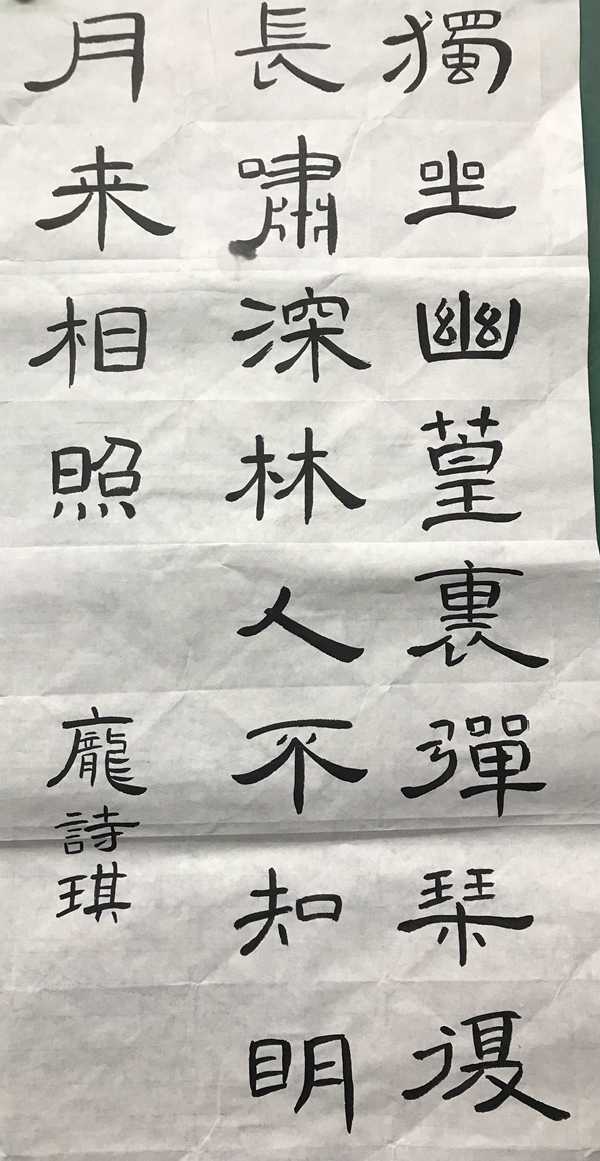 獨坐幽篁裏彈琹復
長嘯深林人不知明
月来相照
龐詩琪